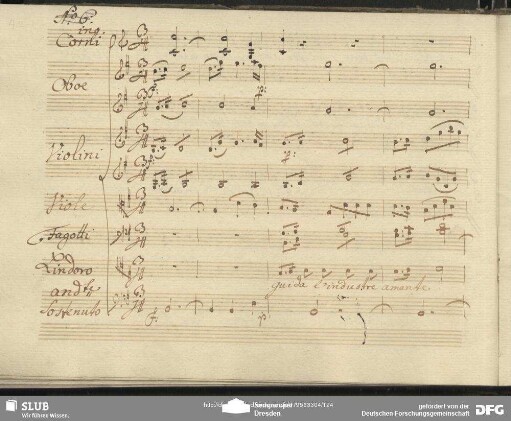 No. 6.
in g
Corni
Oboe
Violini
Viole
Fagotti
Lindoro
guida l'industre amante
andte
Sostenuto
SLUB
Wir führen Wissen.
Dresden
gefördert von der
Deutschen Forschungsgemeinschaft
DFG